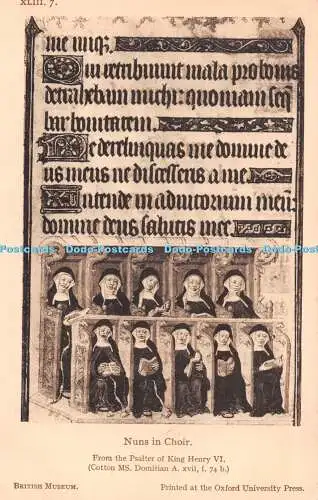 XLIII. 7.
me iniq;
Qui retribuunt mala pro bonis
detrahebant michi: quoniam seq̄
bar bonitatem.
Ne derelinquas me domine de
us meus ne discesseris a me.
Intende in adiutorium meū:
domine deus salutis mee.
Dodo-Postcards Dodo-Postcards Dodo-Postcards
Nuns in Choir.
From the Psalter of King Henry VI.
(Cotton MS. Domitian A. xvii, f. 74 b.)
BRITISH MUSEUM.
Printed at the Oxford University Press.